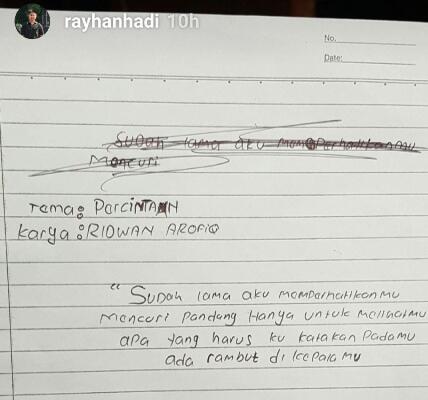 rayhanhadi 10h
No.
Date:
Sudah lama aku memperhatikanmu
Mencuri
Tema: PercINTAAN
Karya: RIDWAN AROFIQ
"Sudah lama aku memperhatikanmu
Mencuri Pandang Hanya untuk melihatmu
apa yang harus ku katakan Padamu
ada rambut di kepalamu